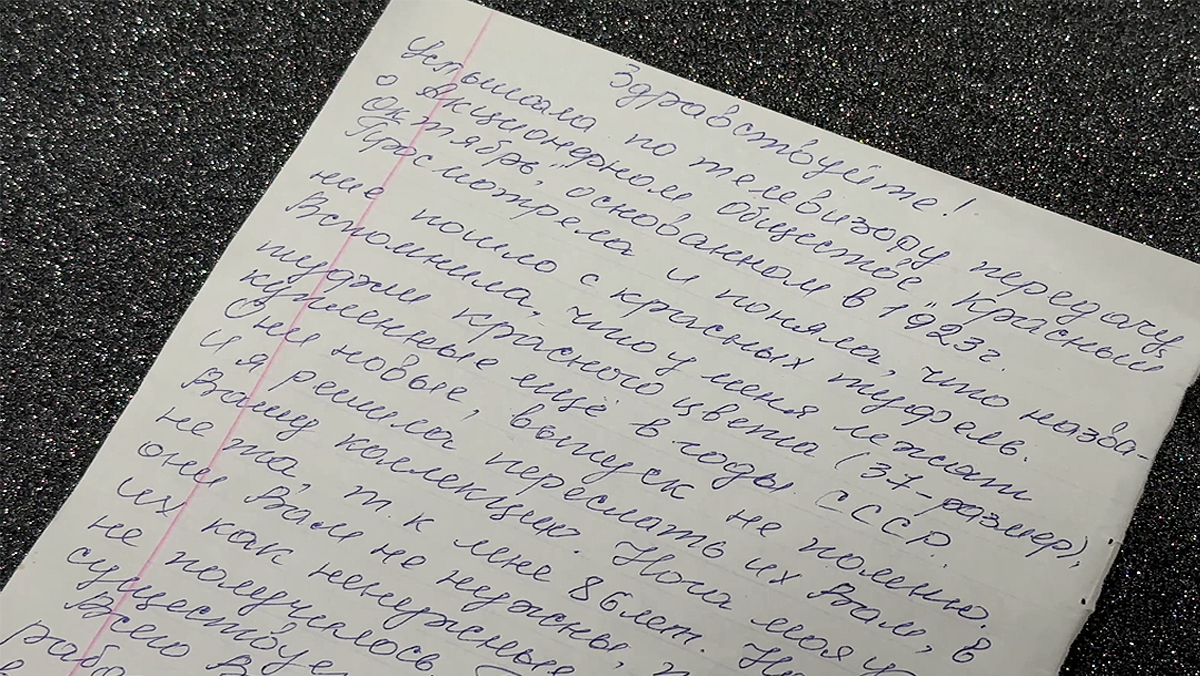 Здравствуйте!
Услышала по телевизору передачу
о Акционерном обществе "Красный
Октябрь", основанном в 1923г.
Просмотрела и поняла, что назва-
ние пошло с красных туфель.
Вспомнила, что у меня лежат
туфли красного цвета (37-размер),
купленные ещё в годы СССР.
Они новые, выпуск не помню.
и я решила переслать их Вам, в
Вашу коллекцию. Нога моя у
не та т.к мне 86 лет.
они Вам не нужны,
их как ненужные
не получилось.
существуе
Всего В
рабо